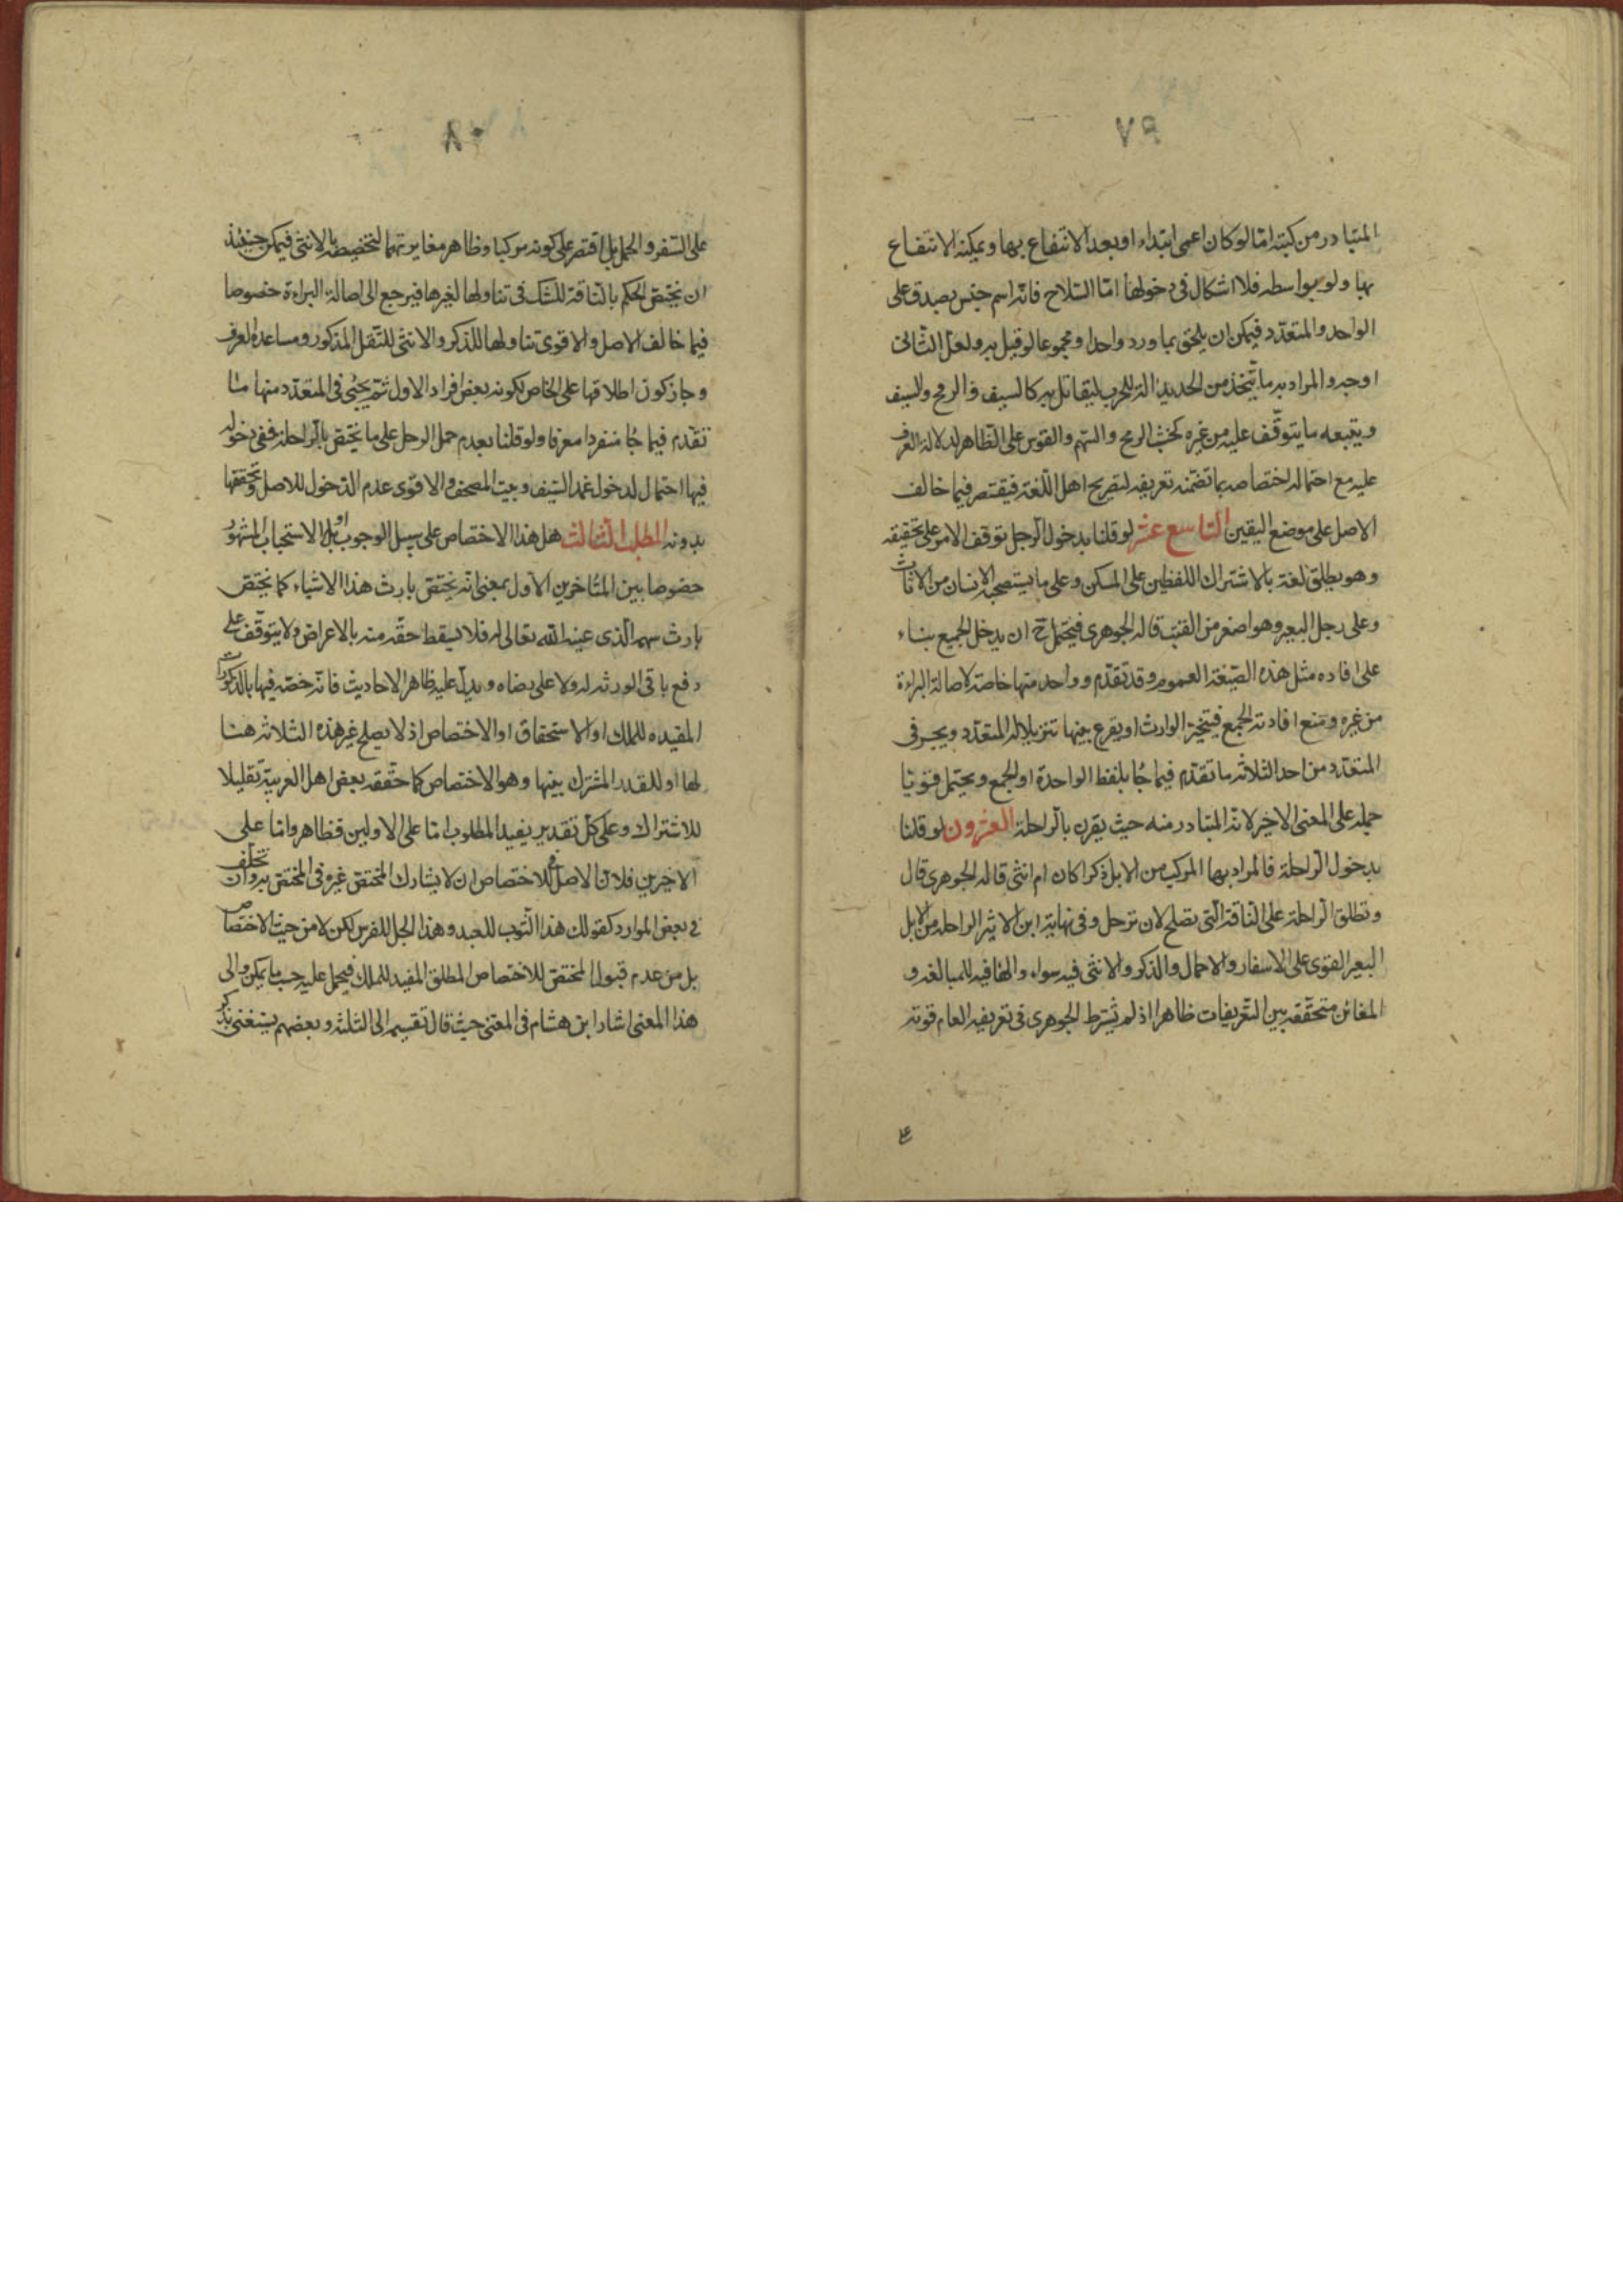 ٧٩
المتبادر من كتبه امّا لو كان اعمى ابتداء او بعد الانتفاع بها ويمكنه الانتفاع
بها ولو بواسطه فلا اشكال فى دخولها امّا السّلاح فانّه اسم جنس يصدق على
الواحد والمتعدّد فيمكن ان يلحق بما ورد واحدا ومجموعا لو قيل به ولعلّ الثّانى
اوجه والمراد به ما يتّخذ من الحديد الة للحرب ليقاتل به كالسيف والرمح والسيف
ويتبعه ما يتوقّف عليه من غيره كخشب الرمح والسّهم والقوس على الظاهر لدلالة العرف
عليه مع احتمال اختصاصه بما تضمّنه تعريفه لتصريح اهل اللّغة فيقتصر فيما خالف
الاصل على موضع اليقين التاسع عشر لو قلنا بدخول الرّحل توقف الامر على تحقيقه
وهو يطلق لغة بالاشتراك اللفظى على المسكن وعلى ما يستصحبه الانسان من الاثاث
وعلى رحل البعير وهو اصغر من القتب قاله الجوهرى فيحتمل ح ان يدخل الجميع بناء
على افاده مثل هذه الصّيغة العموم وقد تقدّم وواحد منها خاصة لاصالة البراءة
من غيره ومنع افادته الجمع فيتخيّر الوارث او يقرع بينها تنزيلا له المتعدّد ويجرى فى
المتعدّد من احد الثلاثه ما تقدّم فيما جاء بلفظ الواحدة او الجمع ويحتمل قويّا
حمله على المعنى الاخير لانّه المتبادر منه حيث يقرن بالرّاحلة العشرون لو قلنا
بدخول الرّاحلة فالمراد بها المركب من الابل ذكرا كان ام انثى قاله الجوهرى قال
وتطلق الرّاحلة على النّاقة الّتى تصلح لان ترحل وفى نهاية ابن الاثير الراحله من الابل
البعير القوى على الاسفار والاحمال والذكر والانثى فيه سواء والهافيه للمبالغه و
المغائرة متحقّقه بين التّعريفات ظاهرا اذ لم يشترط الجوهرى فى تعريفه العام قوته
على
٨٠
على السّفر والحمل بل اقتصر على كونه مركبا وظاهر مغايرتهما لتخصيصه بالانثى فيمكن حينئذ
ان يختصّ الحكم بالنّاقة للشك فى تناولها لغيرها فيرجع الى اصالة البراءة خصوصا
فيما خالف الاصل والاقوى تناولها للذكر والانثى للنّقل المذكور ومساعدة العرف
وجاز كون اطلاقها على الخاص لكونه بعض افراد الاول ثمّ يجئ فى المتعدّد منها ما
تقدّم فيما جاء منفردا معرفا ولو قلنا بعدم حمل الرحل على ما يختصّ بالرّاحلة ففى دخوله
فيها احتمال لدخول غمد السّيف وبيت المصحف والاقوى عدم الدّخول للاصل وتحققها
بدونه المطلب الثالث هل هذا الاختصاص على سبيل الوجوب او بل الاستحباب المشهور
خصوصا بين المتاخرين الاول بمعنى انّه يختصّ بارث هذا الاشياء كما يختصّ
بارث سهمه الّذى عينه اللّه تعالى له فلا يسقط حقّه منه بالاعراض ولا يتوقّف على
دفع باقى الورثه له ولا على رضاه ويدلّ عليه ظاهر الاحاديث فانّه خصّه فيها بالذكورات
المقيده للملك او الاستحقاق او الاختصاص اذ لا يصلح غير هذه الثلاثه هنا
لها او للقدر المشترك بينها وهو الاختصاص كما حقّقه بعض اهل العربيّة تقليلا
للاشتراك وعلى كلّ تقدير يفيد المطلوب امّا على الاولين فظاهر وامّا على
الاخيرين فلانّ الاصل فى الاختصاص ان لا يشارك المختصّ غيره فى المختصّ به وان تخلّف
فى بعض الموارد كقولك هذا الثّوب للعبد وهذا الجل للفرس لكن لا من حيث الاختصاص
بل من عدم قبول المختصّ للاختصاص المطلق المفيد للملك فيحمل عليه حسب ما يمكن والى
هذا المعنى اشار ابن هشام فى المغنى حيث قال تقسيمه الى الثلثه وبعضهم يستغنى بذكر